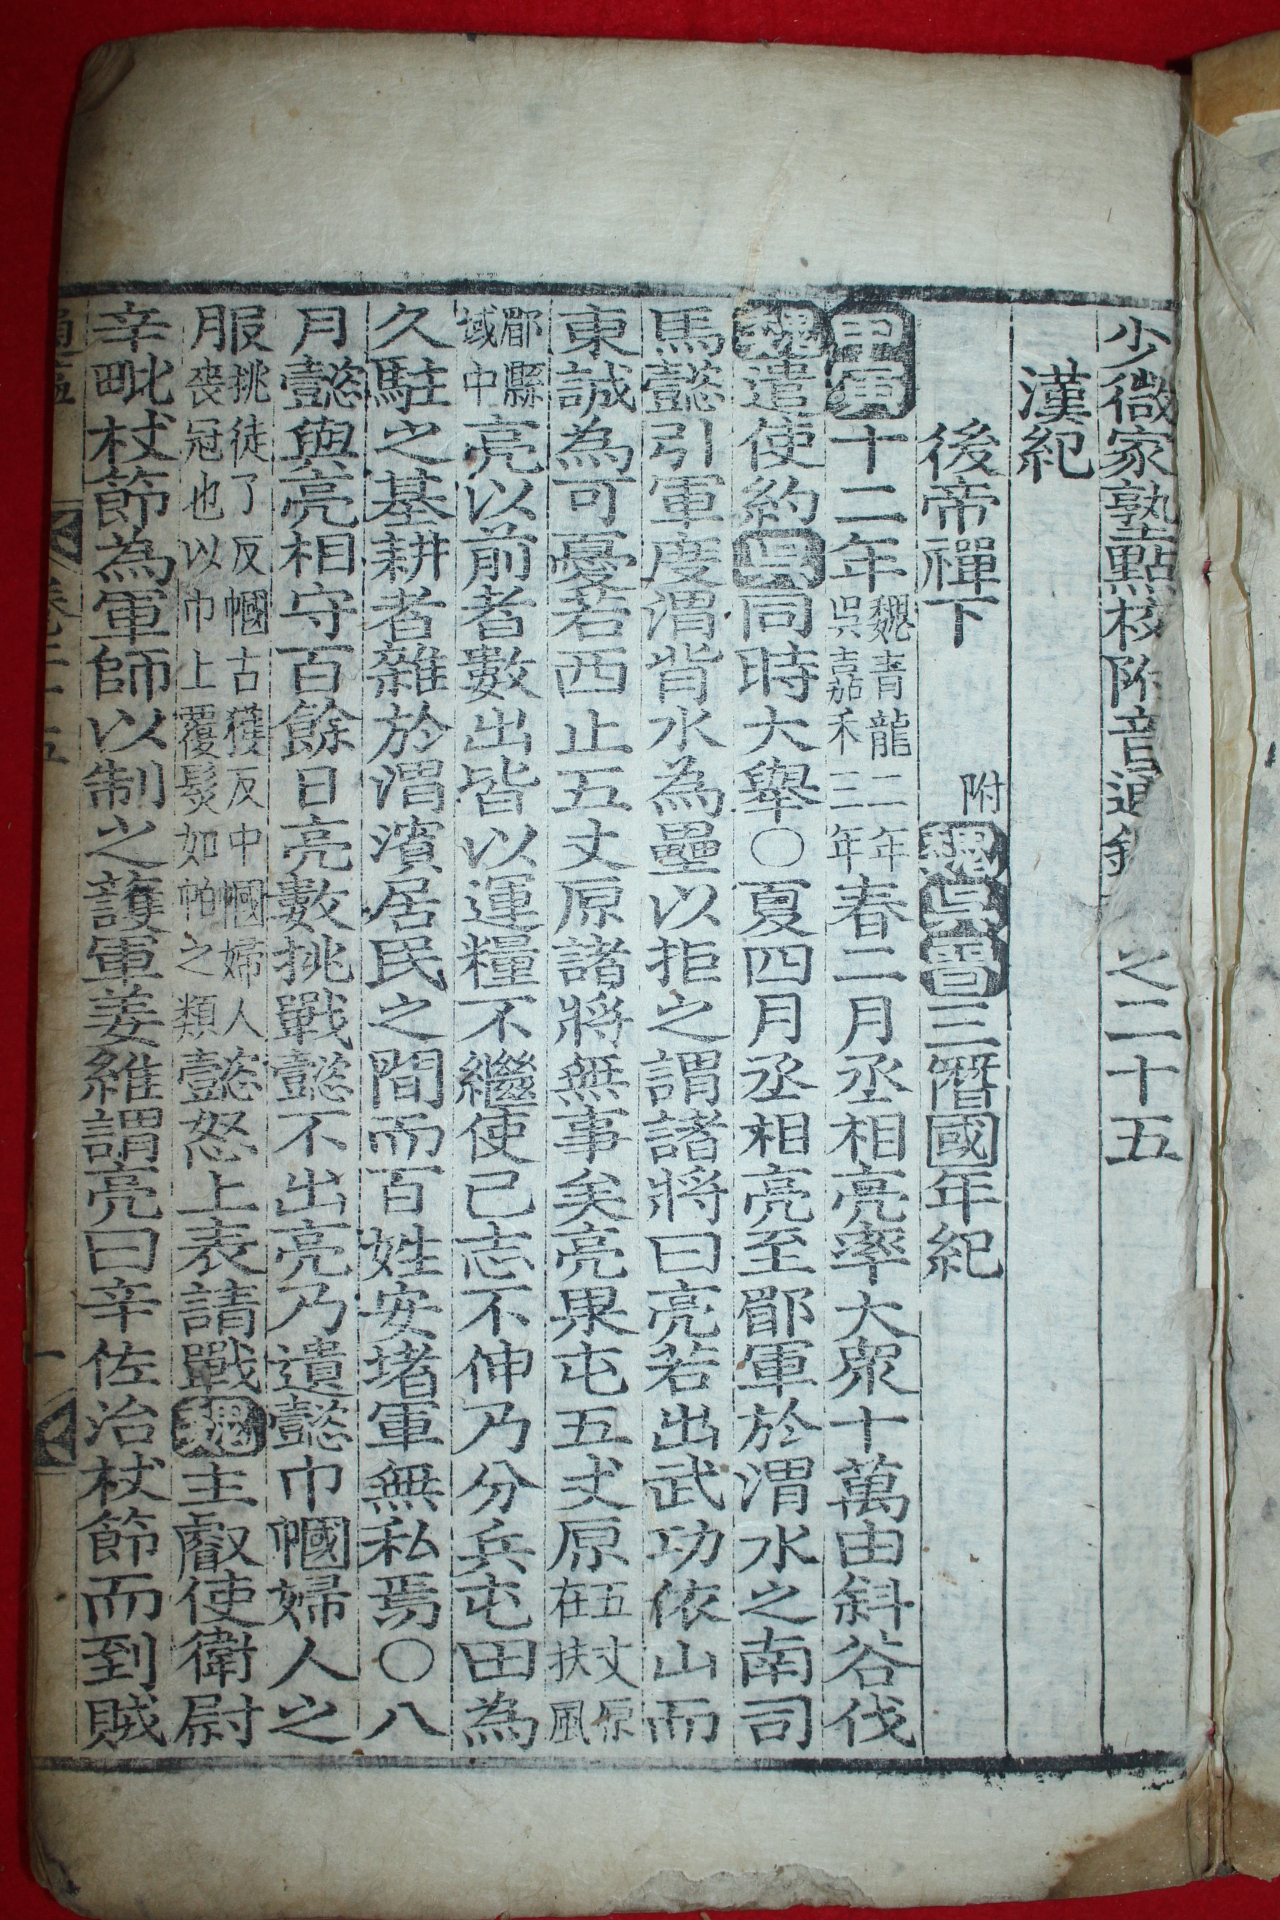 少微家塾點校附音通鑑之二十五
漢紀
後帝禪下 附魏吳晉三僭國年紀
甲寅十二年魏青龍二年吳嘉禾三年春二月丞相亮率大衆十萬由斜谷伐
魏遣使約吳同時大舉○夏四月丞相亮至郿軍於渭水之南司
馬懿引軍度渭背水為壘以拒之謂諸將曰亮若出武功依山而
東誠為可憂若西止五丈原諸將無事矣亮果屯五丈原五丈原在扶風
郿縣域中亮以前者數出皆以運糧不繼使己志不伸乃分兵屯田為
久駐之基耕者雜於渭濱居民之間而百姓安堵軍無私焉○八
月懿與亮相守百餘日亮數挑戰懿不出亮乃遺懿巾幗婦人之
服挑徒了反幗古獲反巾幗婦人喪冠也以巾上覆髮如帕之類懿怒上表請戰魏主叡使衛尉
月辛毗杖節為軍師以制之護軍姜維謂亮曰辛佐治杖節而到賊
卷二十五 一